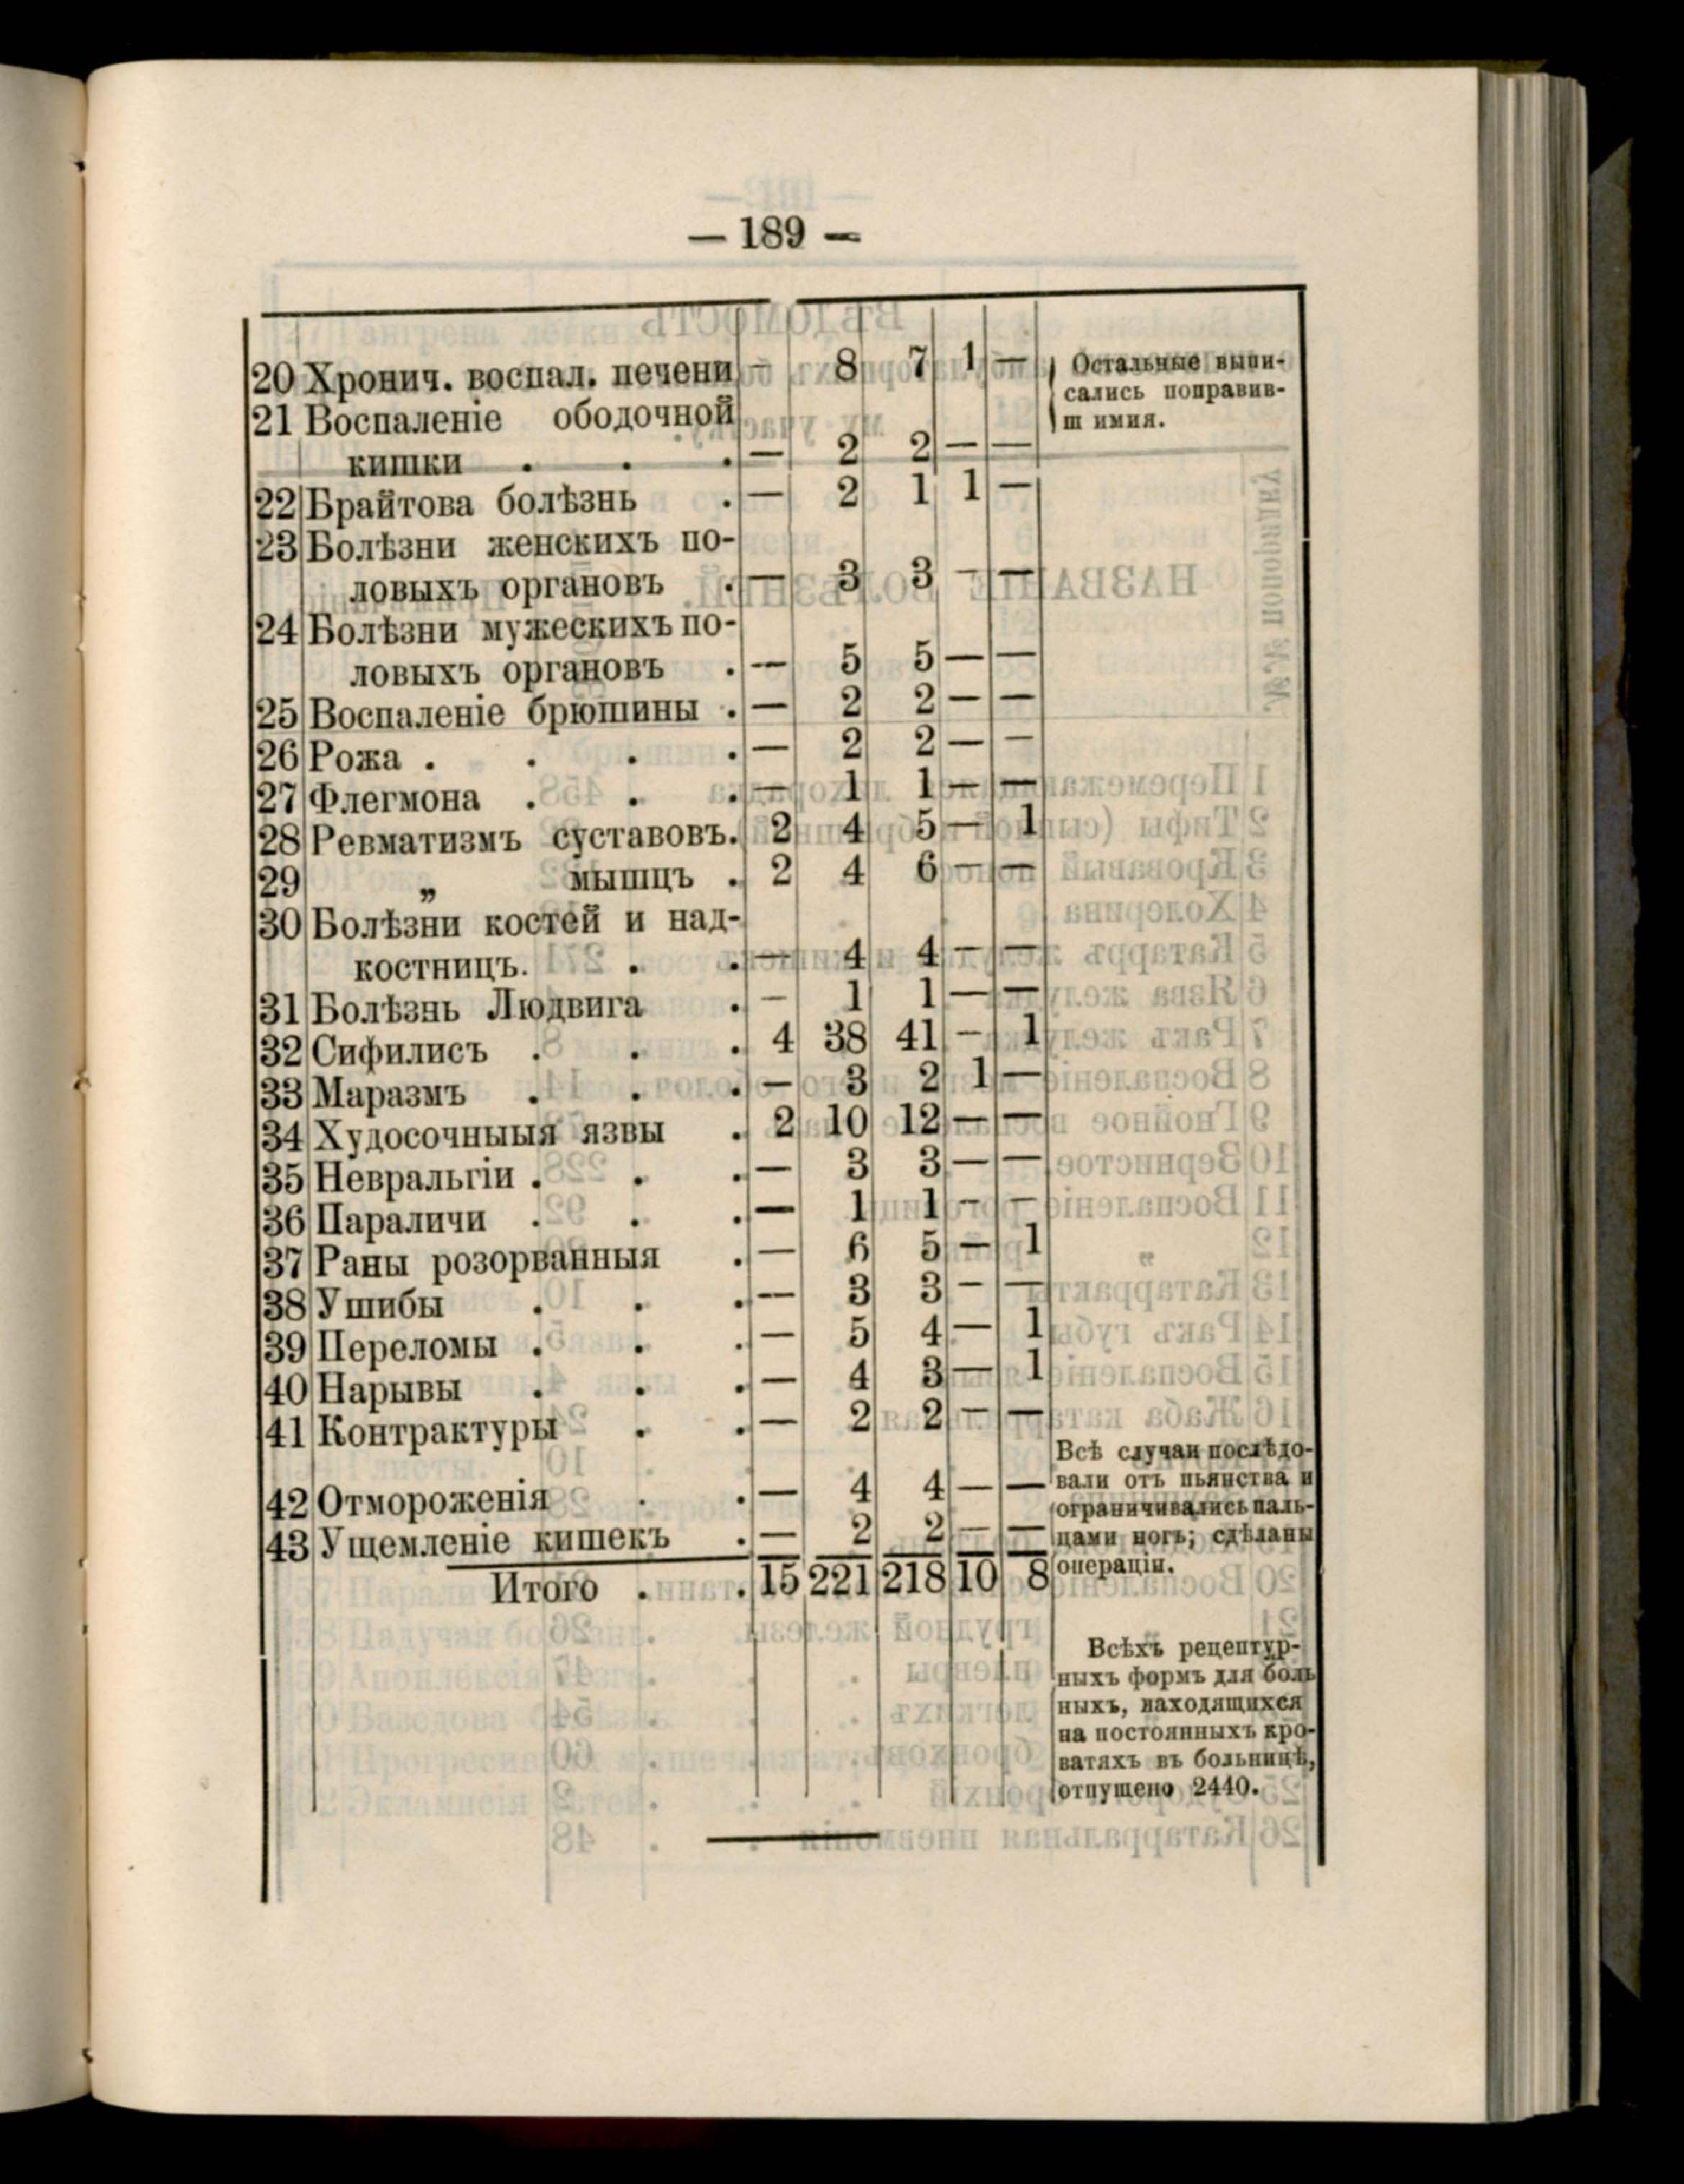 — 189 —
20 Хронич. воспал. печени — 8 7 1 — Остальные выпи-
сались поправив-
ш имия.
21 Воспаленіе ободочной
кишки . . . — 2 2 — —
22 Брайтова болѣзнь . — 2 1 1 —
23 Болѣзни женскихъ по-
ловыхъ органовъ . — 3 3 — —
24 Болѣзни мужескихъ по-
ловыхъ органовъ . — 5 5 — —
25 Воспаленіе брюшины . — 2 2 — —
26 Рожа . . . . — 2 2 — —
27 Флегмона . . . — 1 1 — —
28 Ревматизмъ суставовъ. 2 4 5 — 1
29 „ мышцъ . 2 4 6 — —
30 Болѣзни костей и над-
костницъ. . . — 4 4 — —
31 Болѣзнь Людвига . — 1 1 — —
32 Сифилисъ . . . 4 38 41 — 1
33 Маразмъ . . . — 3 2 1 —
34 Худосочныыя язвы . 2 10 12 — —
35 Невральгіи . . . — 3 3 — —
36 Параличи . . . — 1 1 — —
37 Раны розорванныя . — 6 5 — 1
38 Ушибы . . . — 3 3 — —
39 Переломы . . . — 5 4 — 1
40 Нарывы . . . — 4 3 — 1
41 Контрактуры . . — 2 2 — —
42 Отмороженія . . — 4 4 — —
43 Ущемленіе кишекъ . — 2 2 — —
Итого . . 15 221 218 10 8
Всѣ случаи послѣдо-
вали отъ пьянства и
ограничивались паль-
цами ногъ; сдѣланы
операціи.
Всѣхъ рецептур-
ныхъ формъ для боль
ныхъ, находящихся
на постоянныхъ кро-
ватяхъ въ больницѣ,
отпущено 2440.